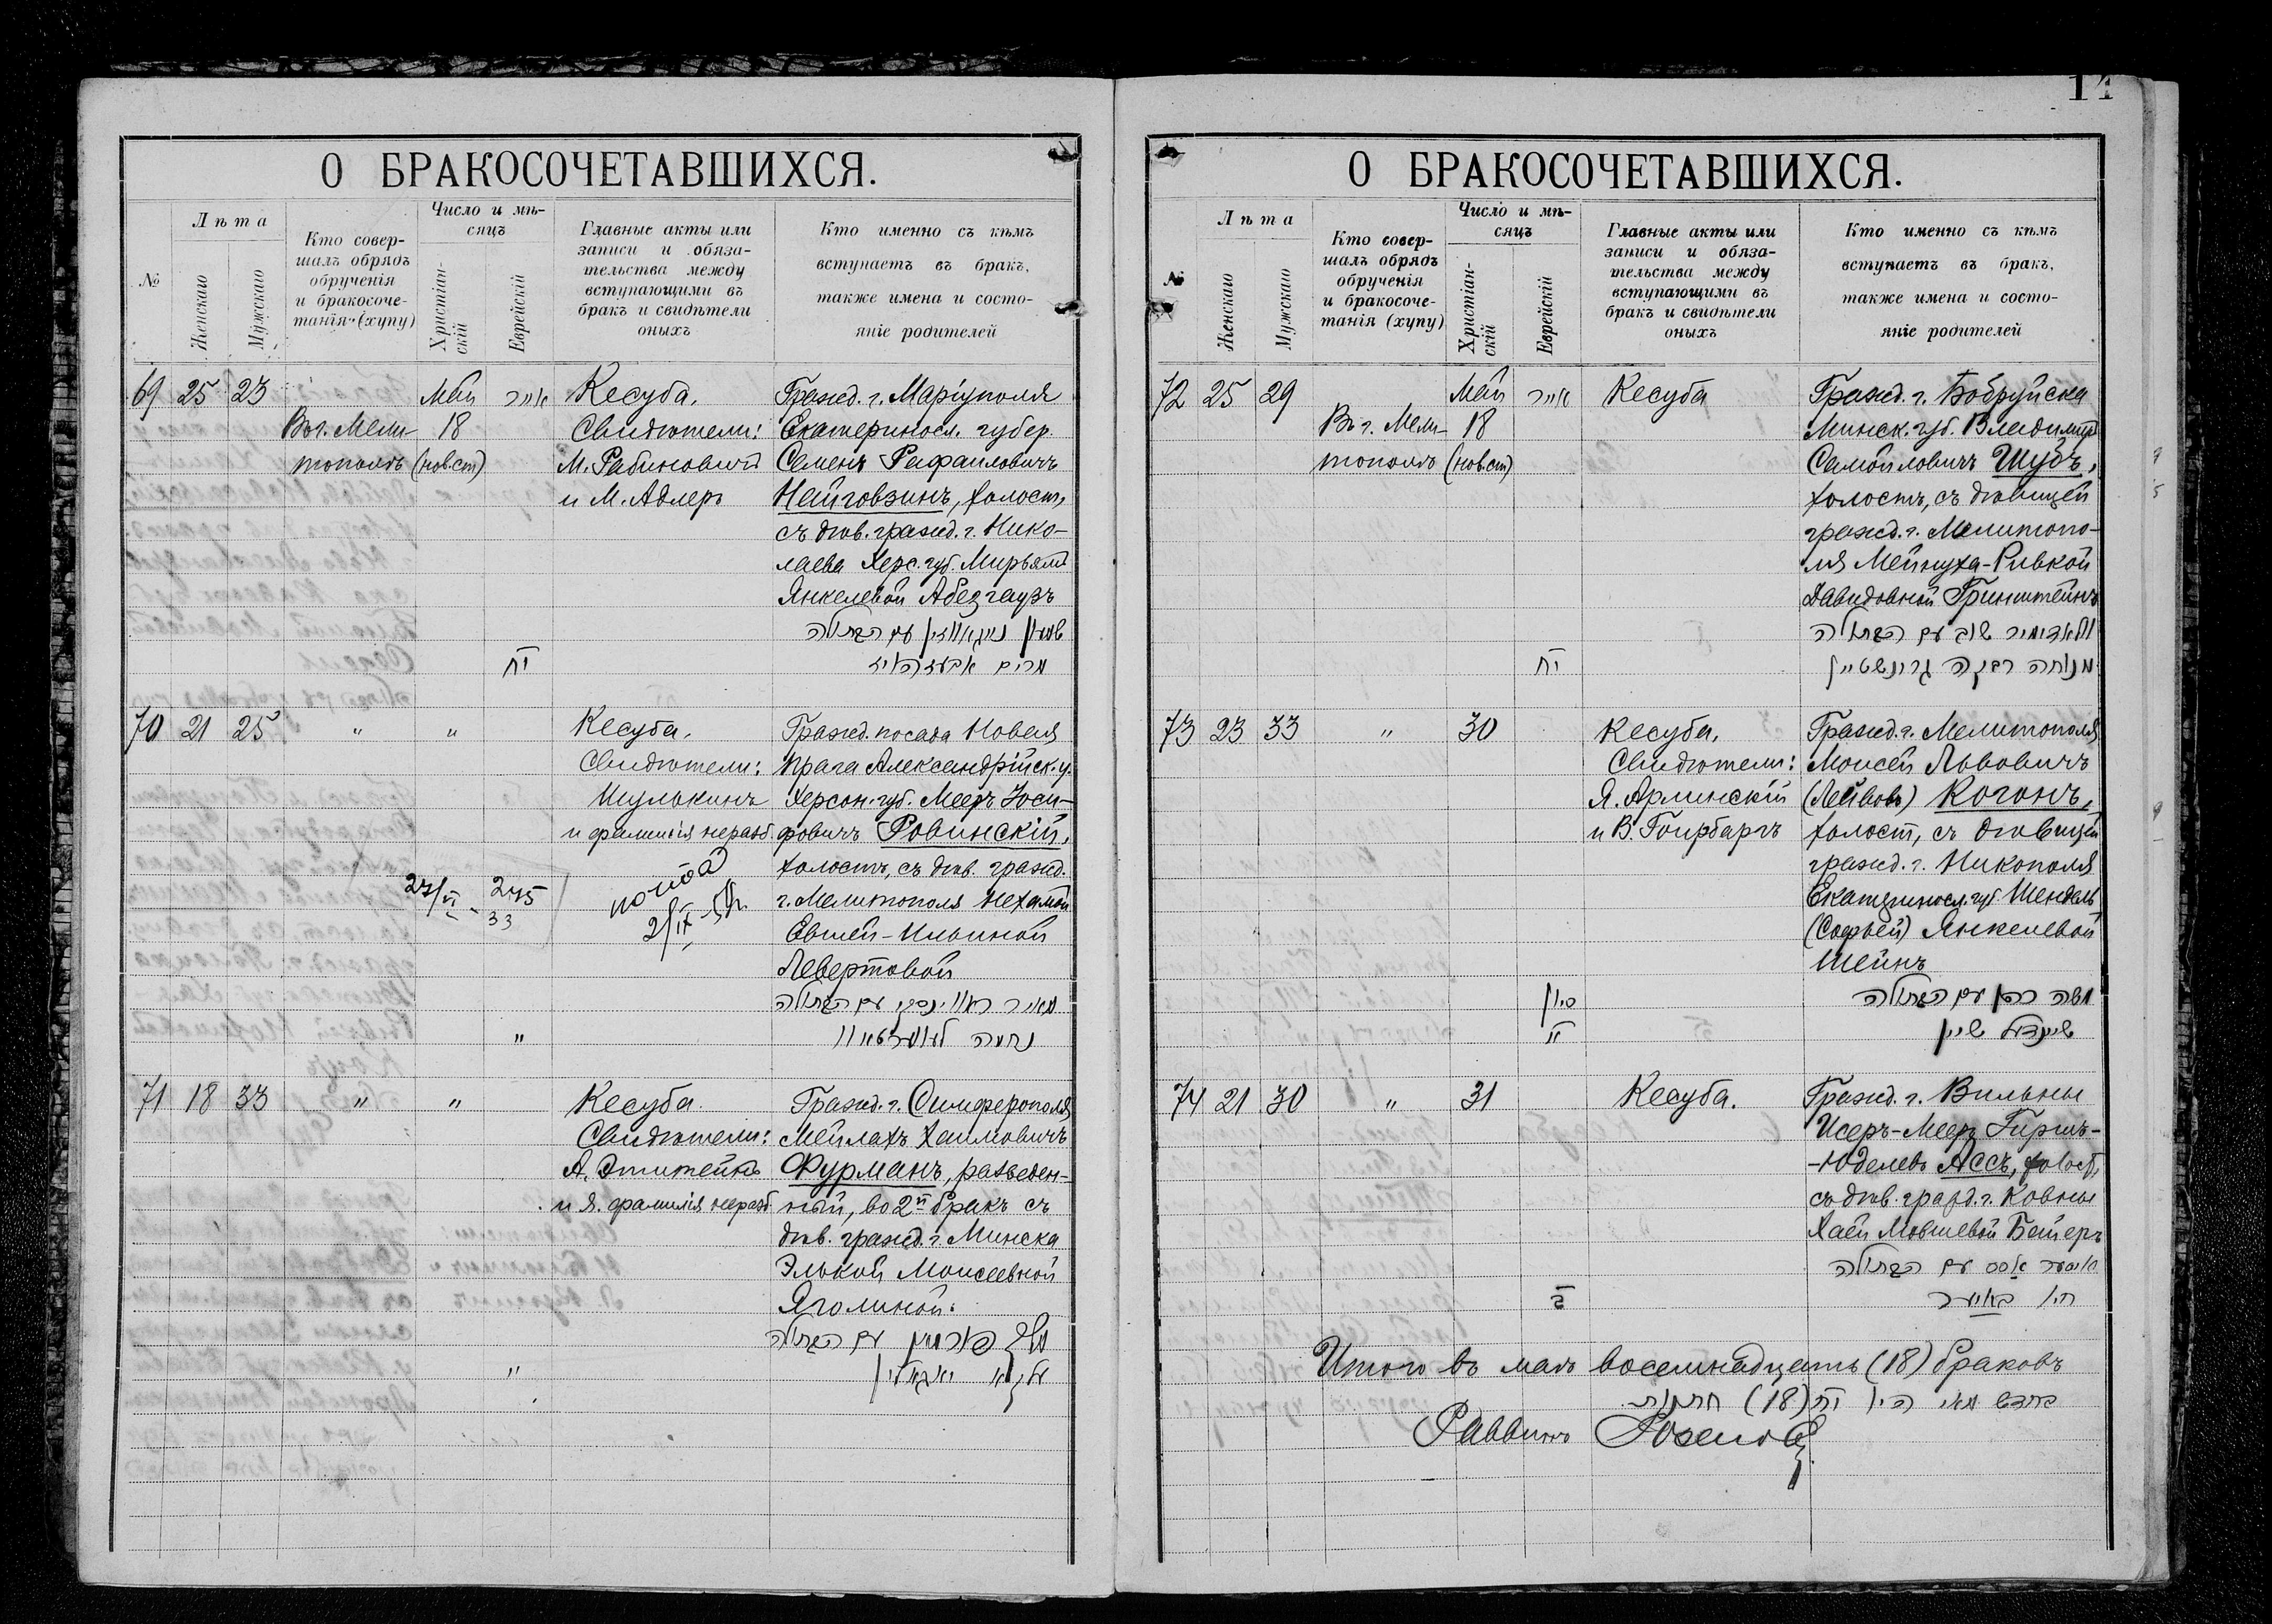 14
О БРАКОСОЧЕТАВШИХСЯ.
№
Лѣта
Женскаго
Мужскаго
Кто совер-
шалъ обрядъ
обрученія
и бракосоче-
танія (хупу)
Число и мѣ-
сяцъ
Христіан-
скій
Еврейскій
Главные акты или
записи и обяза-
тельства между
вступающими въ
бракъ и свидѣтели
оныхъ
Кто именно съ кѣмъ
вступаетъ въ бракъ,
также имена и состо-
яніе родителей
69 25 23
Въ г. Мели-
тополѣ
Май
18
(нов.ст)
אייר
יח
Кесуба.
Свидѣтели:
М. Рабиновичъ
и М. Адлеръ
Гражд. г. Маріуполя
Екатериносл. губер.
Семенъ Рафаиловичъ
Нейговзинъ, холост,
съ дѣв. гражд. г. Нико-
лаева Херс. губ. Мирьямъ
Янкелевой Абезгаузъ
עם הבתולה
מרים
70 21 25
" "
"
Кесуба.
Свидѣтели:
Шулькинъ
и фамилія неразб.
27/VI - 245
33
копія
2/IX
Гражд. посада Новая
Прага Александрійск. у.
Херсон. губ. Мееръ Іоси-
фовичъ Ровинскій,
холостъ, съ дѣв. гражд.
г. Мелитополя Нехамой
Евшей-Ильиной
Левертовой
מאיר ראווינסקי עם הבתולה
נחמה
71 18 33
" "
"
Кесуба.
Свидѣтели:
А. Эпштейнъ
и Я. фамилія неразб.
Гражд. г. Симферополя
Мейлахъ Хаимовичъ
Фурманъ, разведен-
ный, во 2й бракъ съ
дѣв. гражд. г. Минска
Элькой Моисеевной
Яголиной.
מלך פורמאן עם הבתולה
עלקא יאגאלין
О БРАКОСОЧЕТАВШИХСЯ.
№
Лѣта
Женскаго
Мужскаго
Кто совер-
шалъ обрядъ
обрученія
и бракосоче-
танія (хупу)
Число и мѣ-
сяцъ
Христіан-
скій
Еврейскій
Главные акты или
записи и обяза-
тельства между
вступающими въ
бракъ и свидѣтели
оныхъ
Кто именно съ кѣмъ
вступаетъ въ бракъ,
также имена и состо-
яніе родителей
72 25 29
Въ г. Мели-
тополѣ
Май
18
(нов.ст)
אייר
יח
Кесуба
Гражд. г. Бобруйска
Минск. губ. Владимиръ
Самойловичъ Шубъ,
холостъ, съ дѣвицей
гражд. г. Мелитопо-
ля Мейнуха-Ривкой
Давидовной Гринштейнъ
וולאדימיר שוב עם הבתולה
מנוחה רבקה גרינשטיין
73 23 33
" 30
סיון
Кесуба.
Свидѣтели:
Я. Арлинскій
и В. Гоирбаргъ
Гражд. г. Мелитополя
Моисей Львовичъ
(Лейбовъ) Когонъ,
холост, съ дѣвицей
гражд. г. Никополя
Екатериносл. губ. Шендель
(Софьей) Янкелевой
Шейнъ
משה כהן עם הבתולה
שיינדעל שיין
74 21 30
" 31
Кесуба.
Гражд. г. Вильны
Исеръ-Мееръ Гиршъ-
-Юделевъ Ассъ, холост,
съ дѣв. гражд. г. Ковны
Хаей Мовшевой Бейеръ
איסער אסס עם הבתולה
Итого въ маѣ восемнадцать (18) браковъ
בחדש מאי היו יח (18) חתונות
Раввинъ